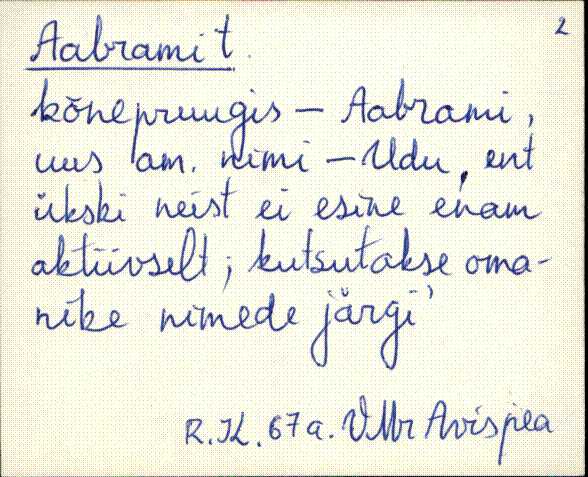 2
Aabrami t.
kõnepruugis – Aabrami,
uus am. nimi – Udu, ent
ükski neist ei esine enam
aktiivselt; kutsutakse oma-
nike nimede järgi'
R. K. 67 a. VMr Avispea